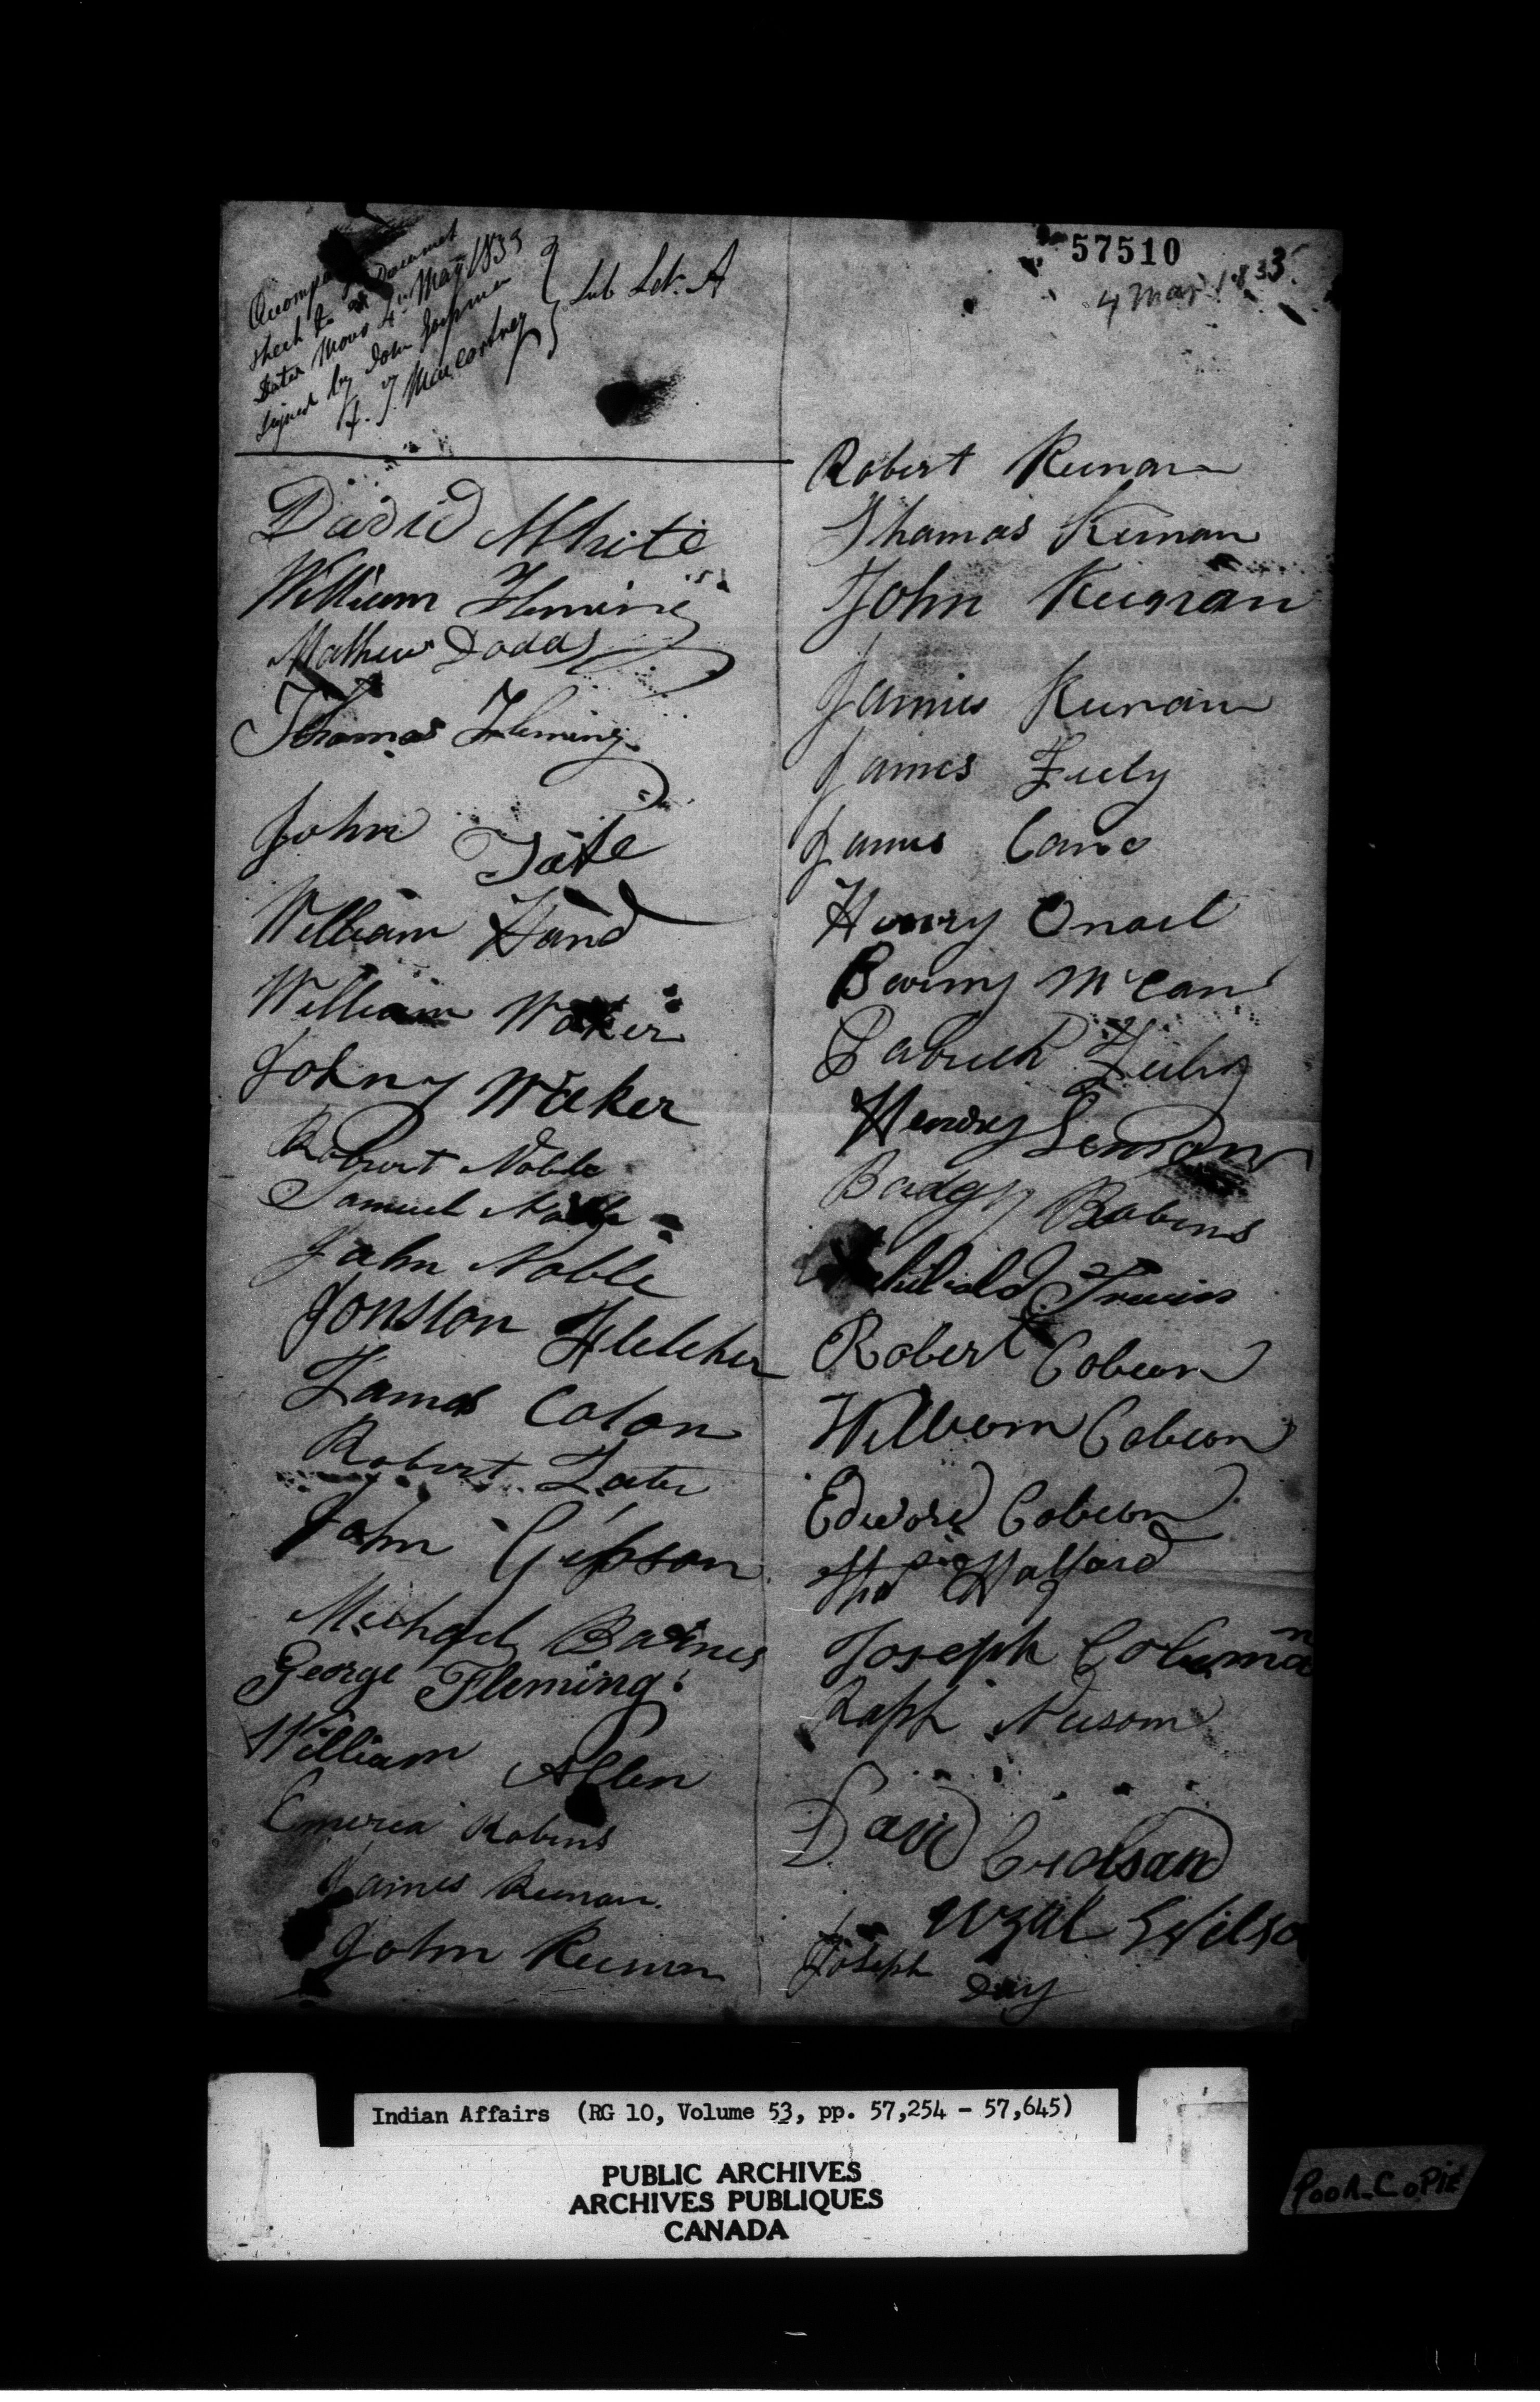 57510
4 May 1833.
sheet to a Document
Dated Mono 4th May 1833
signed by John
& J. Macartney
Sub Let. A
David White
William Fleming
Mathew Dodds
Thomas Fleming
John Tate
William Hand
William Waker
Johny Waker
Robert Noble
Samuel Noble
John Noble
Jonston Fletcher
James Colan
Robert Later
John Gibson
Michael Barnes
George Fleming
William Allen
Robins
James Keenan
John Keenan
Robert Keenan
Thamas Keenan
John Keegan
James Keenan
James Fuly
James Cane
Henry Oneil
Barny McCan
Patrick Fuly
Henry
Badgy Robins
Robert Cobean
William Cobean
Edward Cobean
Halfard
Joseph Coleman
Raph Nusom
David
Uzal Wilso
Joseph Day
Indian Affairs (RG 10, Volume 53, pp. 57,254 - 57,645)
PUBLIC ARCHIVES
ARCHIVES PUBLIQUES
CANADA
POOR COPIE